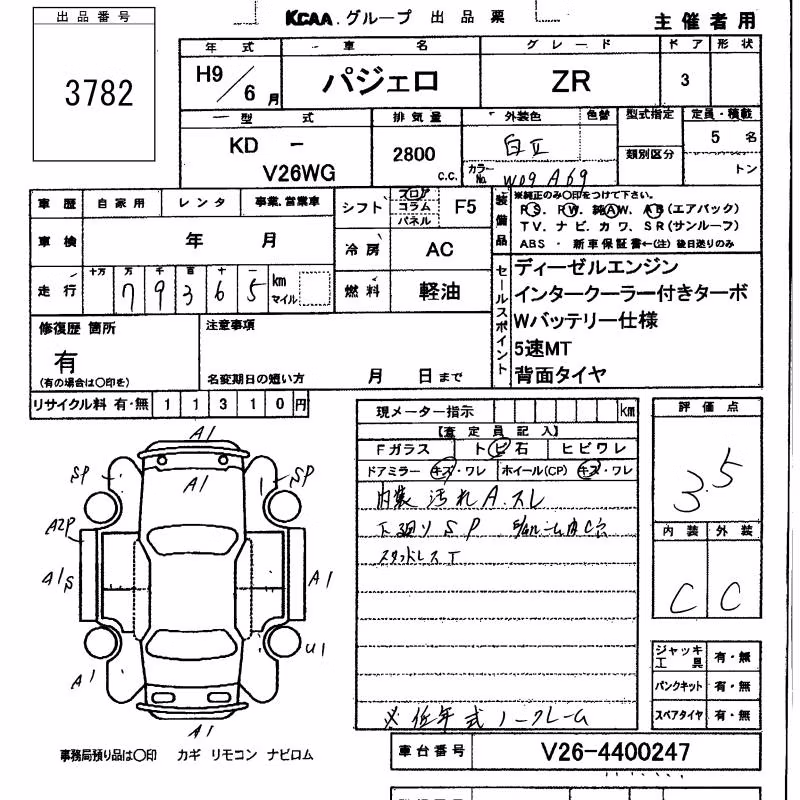 出品番号
3782
KCAA.グループ 出品票
主催者用
年式
H9/6月
車名
パジェロ
グレード
ZR
ドア
3
形状
型式
KD -
V26WG
排気量
2800
C.C.
外装色
白II
色替
カラーNo. W09 A69
型式指定
類別区分
定員・積載
5 名
トン
車歴 自家用 レンタ 事業.営業車
車検 年 月
走行 十万 万 千 百 十 一
7 9 3 6 5
km
マイル
シフト
フロア
コラム
パネル
F5
冷房 AC
燃料 軽油
装備品
※純正のみ○印をつけて下さい。
PS、PW、純AW、AB(エアバック)
TV、ナビ、カワ、SR(サンルーフ)
ABS ・ 新車保証書←(注)後日送りのみ
セールスポイント
ディーゼルエンジン
インタークーラー付きターボ
Wバッテリー仕様
5速MT
背面タイヤ
修復歴 箇所
有
(有の場合は○印を)
注意事項
名変期日の短い方 月 日まで
リサイクル料 有・無 1 1 3 1 0 円
現メーター指示 km
【査定員記入】
Fガラス トビ石 ヒビワレ
ドアミラー キズ・ワレ ホイール(CP) キズ・ワレ
内装 汚れ A.スレ
下廻り SP
スタッドレスT
※低年式ノークレーム
評価点
3.5
内装 外装
C C
ジャッキ工具 有・無
パンクキット 有・無
スペアタイヤ 有・無
A1
A1
SP
SP
A2P
A1S
A1
U1
A1
A1
事務局預り品は○印 カギ リモコン ナビロム
車台番号 V26-4400247